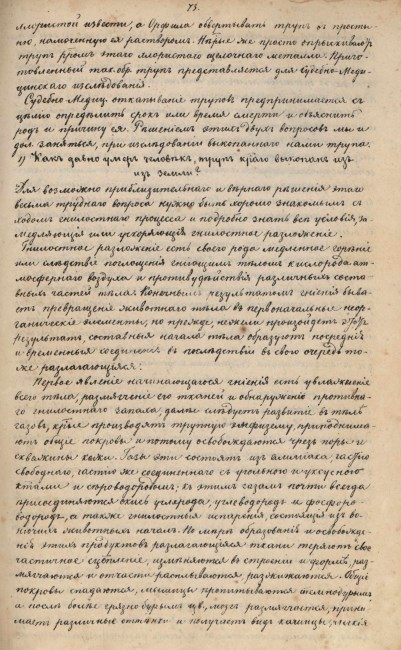 73.
лористой извести, а Орфила обвертывать трупъ въ просты-
ню, намоченную ея растворомъ. Нѣкрые же просто опрыскиваютъ
трупъ ррмъ этаго хлористаго щелочнаго металла. Приго-
товленный так.обр. трупъ представляется для Судебно-Меди-
цинскаго изслѣдованія.
Судебно-Медиц. откапыванія труповъ предпринимается съ
цѣлію опредѣлить срокъ или время смерти и объяснить
родъ и причину ея. Рѣшеніемъ этихъ двухъ вопросовъ мы и
дол. заняться, при изслѣдованіи выкопаннаго нами трупа.
1) Какъ давно умеръ человѣкъ, трупъ краго выкопанъ изъ
изъ земли?
Для возможно приблизительнаго и вѣрнаго рѣшенія этаго
весьма труднаго вопроса нужно быть хорошо знакомымъ съ
ходомъ гнилостнаго процесса и подробно знать всѣ условія, за-
медляющія или ускоряющія гнилостное разложеніе.
Гнилостное разложеніе есть своего рода медленное горѣніе
или слѣдствіе поглощенія гніющимъ тѣломъ кислорода ат-
мосфернаго воздуха и противудѣйствія различныхъ состав-
ныхъ частей тѣла. Конечнымъ результатомъ гніенія быва-
етъ превращеніе животнаго тѣла въ первоначальные неор-
ганическіе элементы, но прежде, нежели произойдетъ этотъ
результатъ, составныя начала тѣла образуютъ посредній
и временныя соединенія въ послѣдствіи въ свою очередь то-
же разлагающіяся.
Первое явленіе начинающагося гніенія есть увлаженіе
всего тѣла, размягченіе его тканей и обнаруженіе противна-
го гнилостнаго запаха, далѣе слѣдуетъ развитіе въ тѣлѣ
газовъ, крые производятъ трупную эмфизему, приподнима-
ютъ общіе покровы и потому освобождаются чрезъ поры и
скважины кожи. Газы эти состоятъ изъ амміака, частію
свободнаго, частію же соединеннаго съ угольною и уксусною
ктами и сѣроводоровымъ; къ этимъ газамъ почти всегда
присоединяются окись углерода, углеводородъ и фосфоро-
водородъ, а также гнилостныя испаренія, состоящія изъ во-
нючихъ животныхъ началъ. По мѣрѣ образованія и освобожде-
нія этихъ продуктовъ разлагающіяся ткани теряютъ свое
частичное сцѣпленіе, измѣняются въ строеніи и формѣ, раз-
мягчаются и отчасти расплываются, разжижаются. Общіе
покровы спадаются, мышцы пропитываются темнобурымъ
а послѣ болѣе грязнобурымъ цв., мозгъ размягчается, прини-
маетъ различные оттѣнки и получаетъ видъ кашицы, легкія